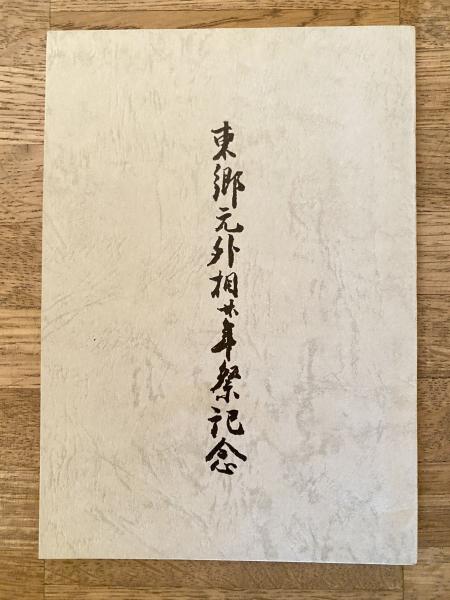 東郷元外相廿年祭記念